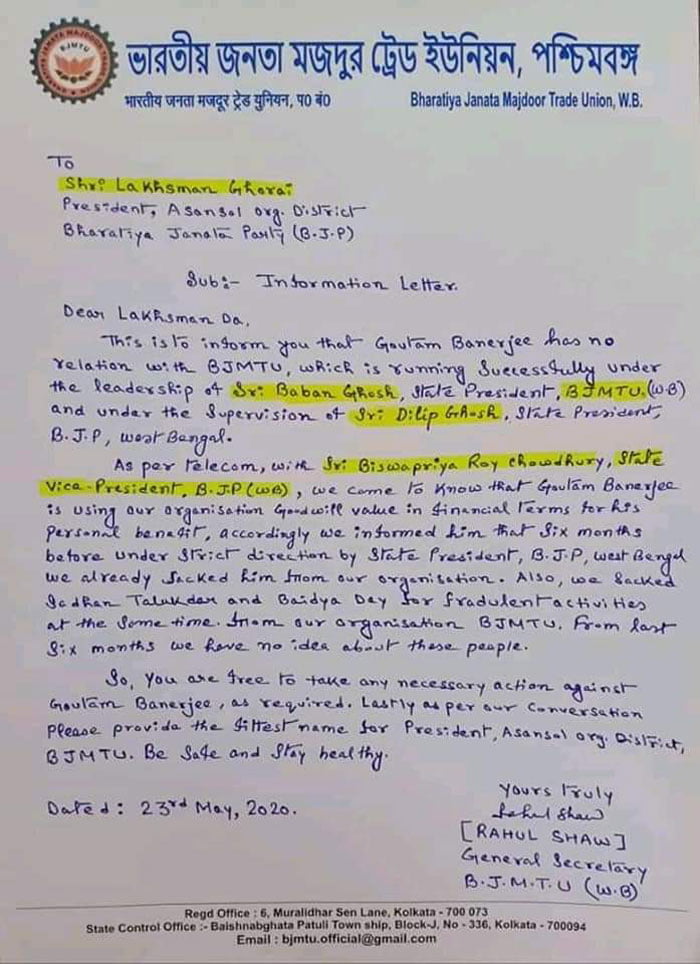 BJMTU
ভারতীয় জনতা মজদুর ট্রেড ইউনিয়ন, পশ্চিমবঙ্গ
भारतीय जनता मजदूर ट्रेड यूनियन, प० बं०
Bharatiya Janata Majdoor Trade Union, W.B.
To
Shri Lakhsman Ghorai
President, Asansol Org. District
Bharatiya Janata Party (B.J.P)
Sub:- Information Letter.
Dear Lakhsman Da,
This is to inform you that Goutam Banerjee has no
relation with BJMTU, which is running successfully under
the leadership of Sri Baban Ghosh, State President, BJMTU, (W.B)
and under the supervision of Sri Dilip Ghosh, State President,
B.J.P, West Bengal.
As per telecom, with Sri Biswapriya Roy Chowdhury, State
Vice-President, B.J.P (WB), we come to know that Goutam Banerjee
is using our organisation Goodwill value in financial terms for his
personal benefit, accordingly we informed him that six months
before under strict direction by State President, B.J.P, West Bengal
we already sacked him from our organisation. Also, we sacked
Sadhan Talukdar and Baidya Dey for fradulent activities
at the same time. from our organisation BJMTU. From last
six months we have no idea about these people.
So, you are free to take any necessary action against
Goutam Banerjee, as required. Lastly as per our conversation
please provide the fittest name for President, Asansol org. District,
BJMTU. Be safe and stay healthy.
Dated: 23rd May, 2020.
Yours truly
Rahul Shaw
[RAHUL SHAW]
General Secretary
B.J.M.T.U (W.B)
Regd Office : 6, Muralidhar Sen Lane, Kolkata - 700 073
State Control Office :- Baishnabghata Patuli Town ship, Block-J, No - 336, Kolkata - 700094
Email : bjmtu.official@gmail.com